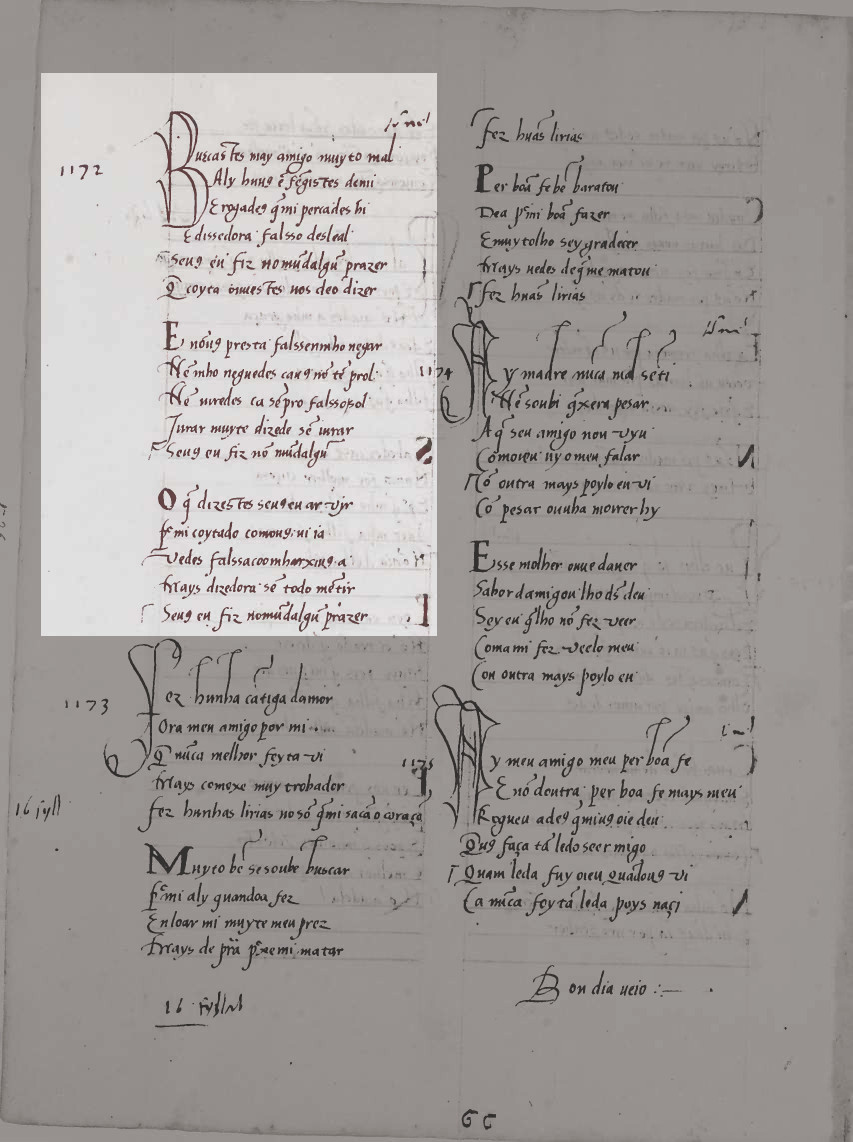 1172
Buscastes may amigo muyto mal
Aly huuꝯ ẽ fẽgistes demi
E rogadeꝯ q̃ mi percades hi
E dissedora falsso desleal
Seuꝯ eu fiz no mũdalgũ prazer
Q̃ coyta ouuestes uos deo dizer
E nõuꝯ presta falssenmho negar
Nẽ mho neguedes cauꝯ nõ tẽ prol
Nẽ iuredes ca sẽpro falssoſol
Iurar muyte dizede sẽ iurar
Seuꝯ eu fiz nõ mũdalgũ
O q̃ dizestes seuꝯ eu ar uyr
Pᵉ mi coytado comouꝯ ui ia
Vedes falssacoomhar
Mays dizedora sẽ todo mẽtir
Seuꝯ eu fiz nomũdalgũ prazer
1173
Fez hunha cãtiga damor
Ora meu amigo por mi
Q̃ nũca melhor feyta vi
Mays comoxe muy trobador
Fez hunhas lirias no sõ q̃ mi sacã o coraçõ
16 syll
Muyto bẽ se soube buscar
Pᵉ mi aly quandoa fez
En loar mi muyte meu prez
Mays de prã pᵉ xe mi matar
16 syllab
Fez huãs lirias
Per boã fe bẽ baratou
Dea pᵉ mi boã fazer
E muytolho sey gradecer
Mays uedes deq̃ me matou
Fez huãs lirias
1174
Ay madre nũca mal sẽti
Nẽ soubi q̃ xera pesar
A q̃ seu amigo nou vyu
Comoieu uy o meu falar
Cõ outra mays poylo eu vi
Cõ pesar ouuha morrer hy
E sse molher ouue daver
Sabor damigou lho ds̃ deu
Sey eu q̃ lho nõ fez veer
Coma mi fez veelo meu
Con outra mays poylo eu
1175
Ay meu amigo meu per boa fe
E nõ doutra per boa fe mays meu
Rogueu adeꝯ q̃ miuꝯ oie deu
Quꝯ faça tã ledo seer migo
Quam leda fuy oieu quãdouꝯ vi
Ca nũca foy tã leda poys naçi
Bon dia ueio :—
66